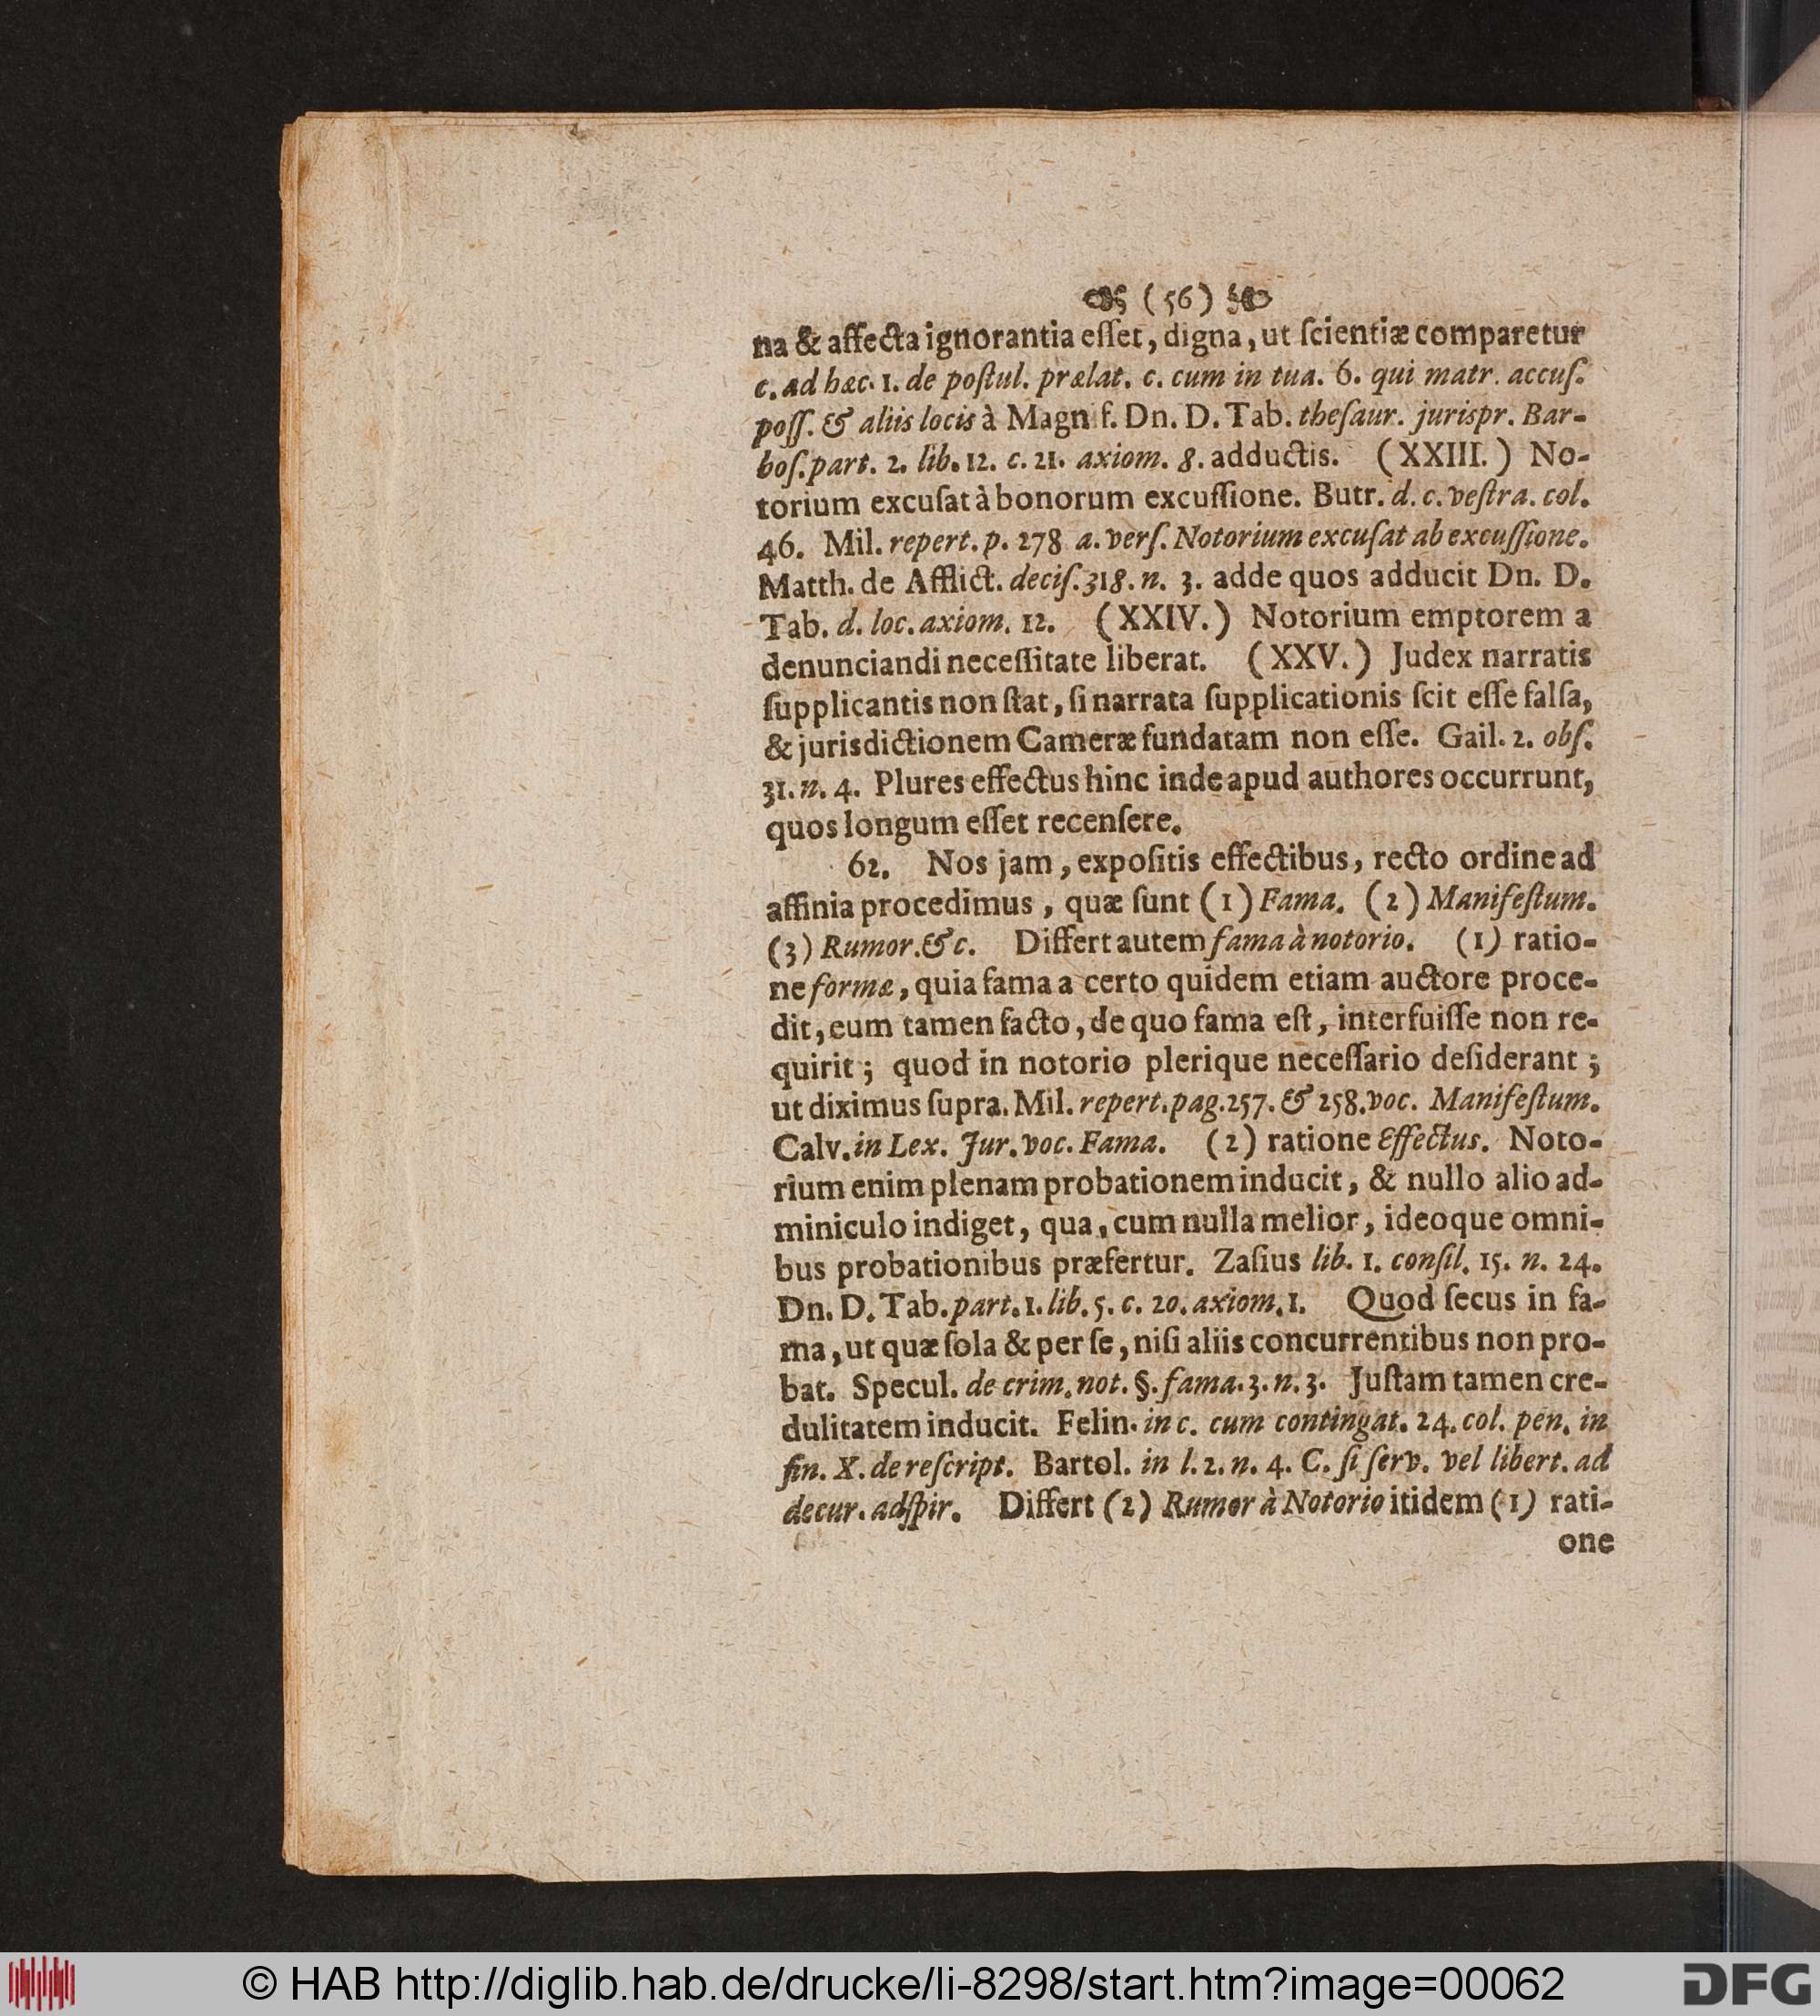 (56)
na & affecta ignorantia eſſet, digna, ut ſcientiæ comparetur
c. ad hæc. 1. de poſtul. prælat. c. cum in tua. 6. qui matr. accuſ.
poſſ. & aliis locis à Magnif. Dn. D. Tab. theſaur. jurispr. Bar-
boſ. part. 2. lib. 12. c. 21. axiom. 8. adductis. (XXIII.) No-
torium excuſat à bonorum excuſſione. Butr. d. c. veſtra. col.
46. Mil. repert. p. 278 a. verſ. Notorium excuſat ab excuſſione.
Matth. de Afflict. deciſ. 318. n. 3. adde quos adducit Dn. D.
Tab. d. loc. axiom. 12. (XXIV.) Notorium emptorem a
denunciandi neceſſitate liberat. (XXV.) Judex narratis
ſupplicantis non ſtat, ſi narrata ſupplicationis ſcit eſſe falſa,
& jurisdictionem Cameræ fundatam non eſſe. Gail. 2. obſ.
31. n. 4. Plures effectus hinc inde apud authores occurrunt,
quos longum eſſet recenſere.
62. Nos jam, expoſitis effectibus, recto ordine ad
affinia procedimus, quæ ſunt (1) Fama. (2) Manifeſtum.
(3) Rumor. &c. Differt autem fama à notorio. (1) ratio-
ne formæ, quia fama a certo quidem etiam auctore proce-
dit, eum tamen facto, de quo fama eſt, interfuiſſe non re-
quirit; quod in notorio plerique neceſſario deſiderant;
ut diximus ſupra. Mil. repert. pag. 257. & 258. voc. Manifeſtum.
Calv. in Lex. Jur. voc. Fama. (2) ratione Effectus. Noto-
rium enim plenam probationem inducit, & nullo alio ad-
miniculo indiget, qua, cum nulla melior, ideoque omni-
bus probationibus præfertur. Zaſius lib. 1. conſil. 15. n. 24.
Dn. D. Tab. part. 1. lib. 5. c. 20. axiom. 1. Quod ſecus in fa-
ma, ut quæ ſola & per ſe, niſi aliis concurrentibus non pro-
bat. Specul. de crim. not. §. fama. 3. n. 3. Juſtam tamen cre-
dulitatem inducit. Felin. in c. cum contingat. 24. col. pen. in
fin. X. de reſcript. Bartol. in l. 2. n. 4. C. ſi ſerv. vel libert. ad
decur. adſpir. Differt (2) Rumor à Notorio itidem (1) rati-
one
© HAB http://diglib.hab.de/drucke/li-8298/start.htm?image=00062
DFG